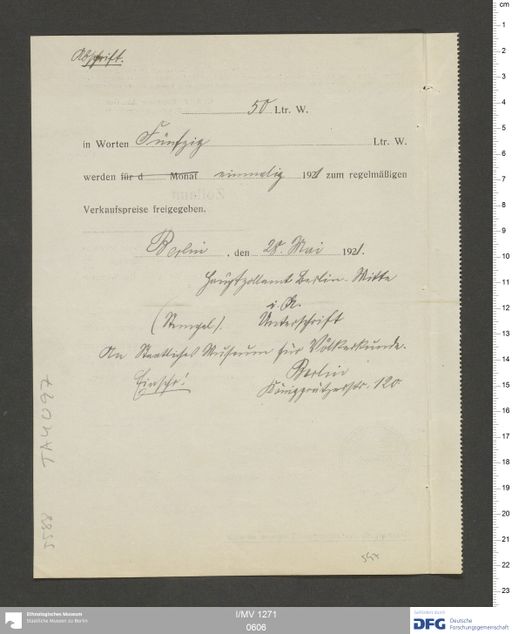 Abschrift.
50 Ltr. W.
in Worten Fünfzig Ltr. W.
werden für d Monat einmalig 1921 zum regelmäßigen
Verkaufspreise freigegeben.
Berlin, den 28. Mai 1921.
Hauptzollamt Berlin-Mitte
i. A.
(Stempel). Unterschrift
An Staatliches Museum für Völkerkunde.
Einschr! Berlin
Königgrätzerstr. 120
TA4097
Ethnologisches Museum
Staatliche Museen zu Berlin
I/MV 1271
0606
DFG Deutsche
Forschungsgemeinschaft
cm
1
2
3
4
5
6
7
8
9
10
11
12
13
14
15
16
17
18
19
20
21
22
23